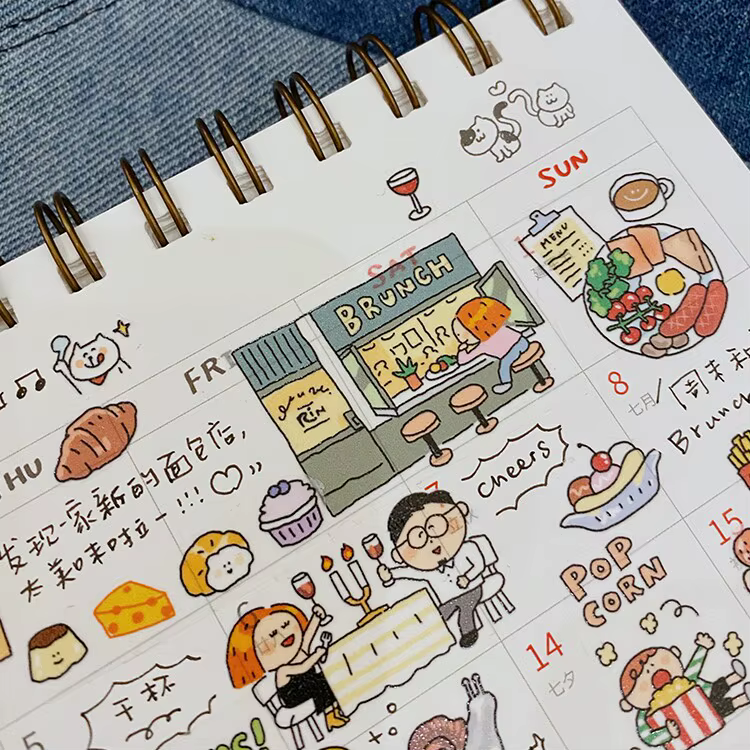 SUN
SAT
MENU
BRUNCH
FRI
THU
8
七月
周末和
Brunch
发现一家新的面包店,
太美味啦一!!!♡„
cheers
7
15
POP
CORN
14
七夕
干杯
5